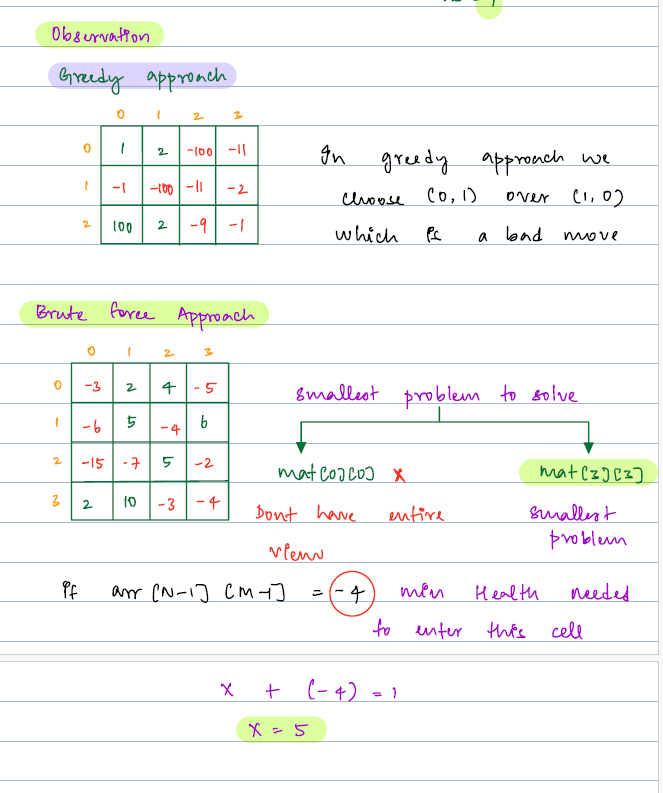 Observation
Greedy approach
0 1 2 3
0 1 2 -100 -11
1 -1 -100 -11 -2
2 100 2 -9 -1
In greedy approach we
choose (0,1) over (1,0)
which is a bad move
Brute force Approach
0 1 2 3
0 -3 2 4 -5
1 -6 5 -4 6
2 -15 -7 5 -2
3 2 10 -3 -4
smallest problem to solve
mat[0][0] x
Dont have entire
view
mat[3][3]
smallest
problem
if arr [N-1] [M-1] = -4 min Health needed
to enter this cell
x + (-4) = 1
x = 5